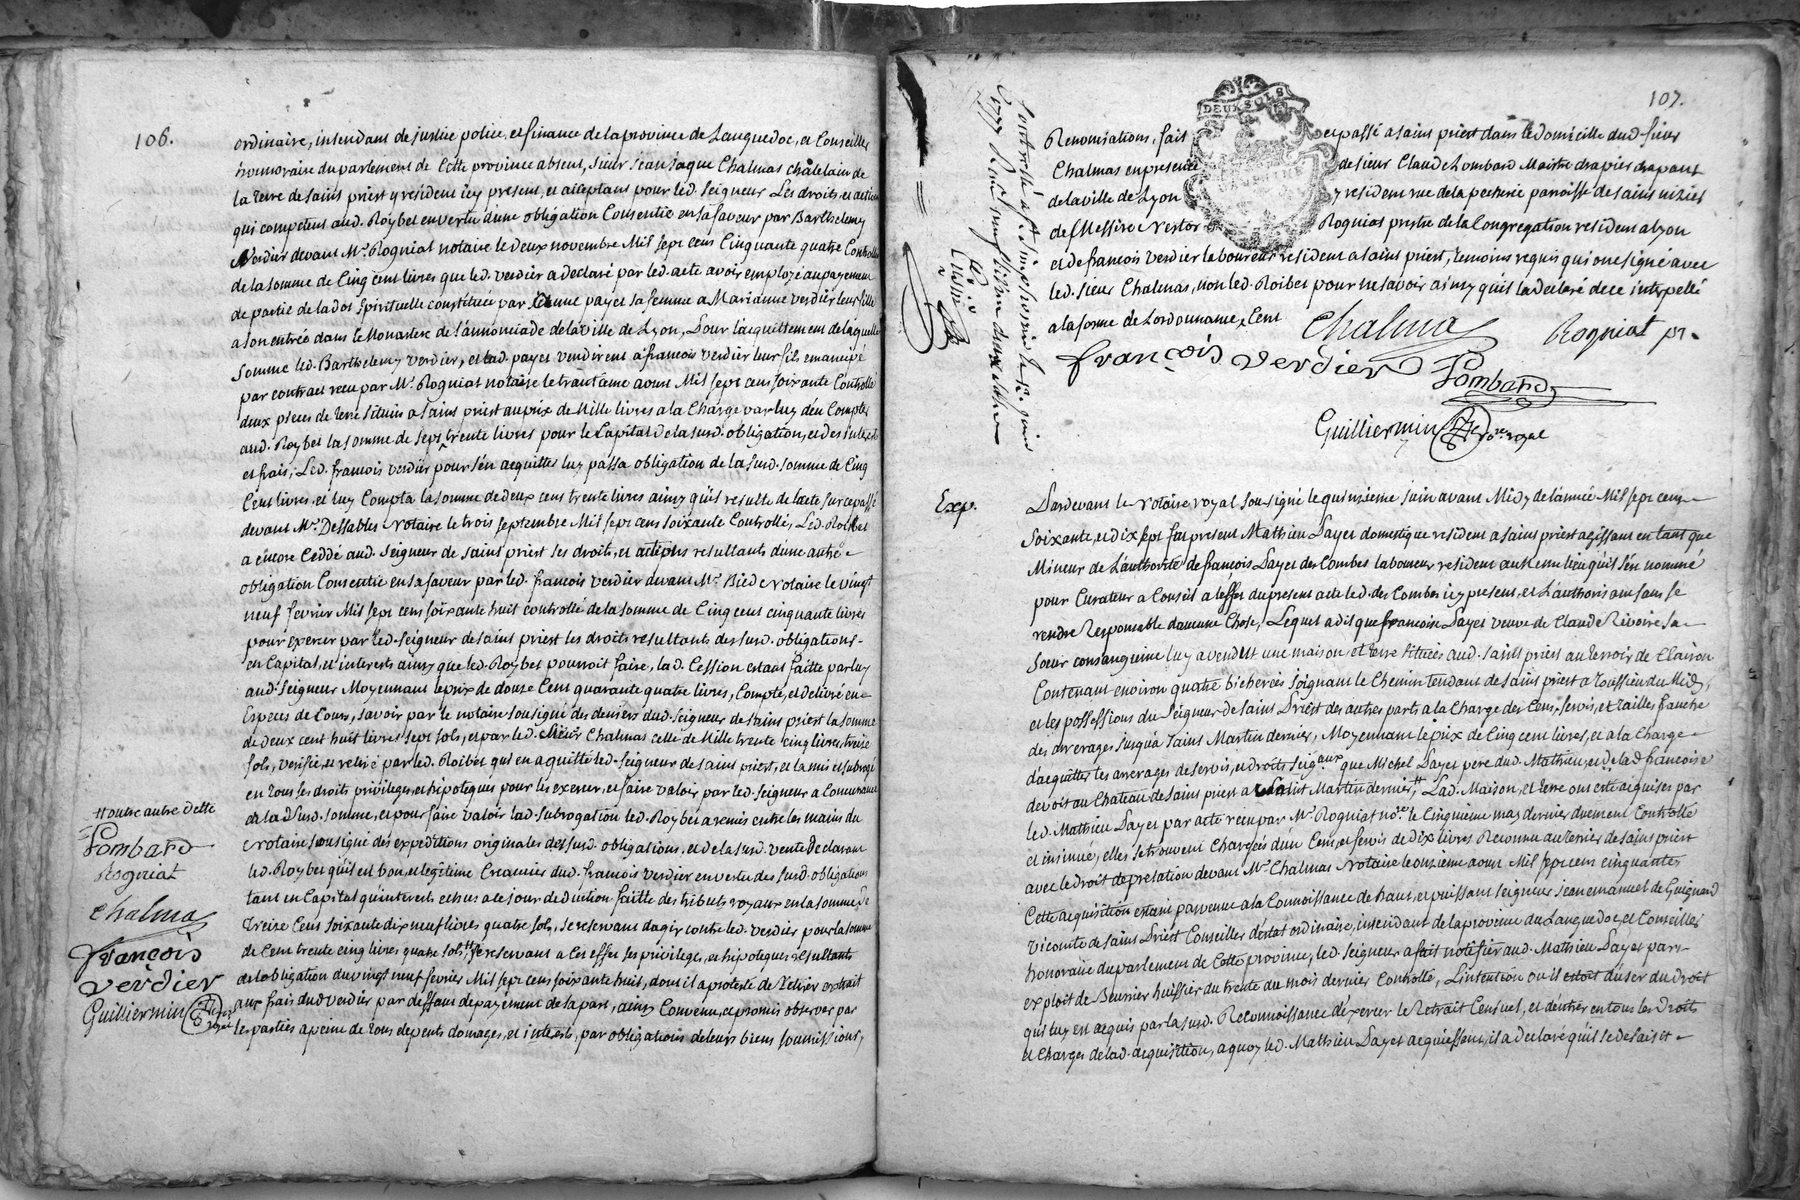 106.
ordinaire, intendant de justice police, et finance de la province de Languedoc, et Conseiller
honnoraire du parlement de Cette province absent, sieur Jean Jaque Chalmas châtelain de
la terre de saint priest y resident icy present, et acceptant pour led. seigneur Les droits, et actions
qui competent aud. Roybet en vertu d'une obligation Consentie en sa faveur par Barthelemy
Verdier devant Mr. Rogniat notaire le deux novembre Mil sept cens Cinquante quatre Controllé
de la somme de Cinq cent livres que led. verdier a declaré par led. acte avoir employé au payement
de partie de la dot spirituelle constituée par payet sa femme a Marianne verdier leur fille
a son entrée dans le Monastere de l'annonciade de la ville de Lyon, Pour l'acquittement de laquelle
somme led. Barthelemy verdier, et lad. payet vendirent a françois verdier leur fils emancipé
par contract recu par Mr. Rogniat notaire le trantième aoust Mil sept cens soixante Controllé
deux pieces de terre situées a saint priest au prix de Mille livres a la Charge par luy d'en Compter
aud. Roybet la somme de sept trente livres pour le Capital de la susd. obligation, et des interests
et frais; Led. françois verdier pour s'en acquitter luy passa obligation de la susd. somme de Cinq
Cent livres, et luy Compta la somme de deux cens trente livres ainsy qu'il resulte de l'acte sur ce passé
devant Mr. Dessables Notaire le trois septembre Mil sept cens soixante Controllé, Led. Roibet
a encore Ceddé aud. seigneur de saint priest ses droits, et actions resultants d'une autre
obligation Consentie en sa faveur par led. françois verdier devant Mr. Biede Notaire le vingt
neuf fevrier Mil sept cens soixante huit controllé de la somme de Cinq cent cinquante livres
pour exercer par led. seigneur de saint priest les droits resultants des susd. obligations
en Capital, et interests ainsy que led. Roybet pourroit faire, lad. Cession etant faitte par luy
aud. seigneur Moyennant le prix de douze Cent quarante quatre livres, Compté, et delivré en
Especes de Cours, savoir par le notaire sousigné des deniers dud. seigneur de saint priest la somme
de deux cent huit livres sept sols, et par led. sieur Chalmas celle de Mille trente cinq livres treize
sols, verifié, et retiré par led. Roibet qui en a quitté led. seigneur de saint priest, et l'a mis et subrogé
en tous ses droits privileges, et hipoteques pour les exercer, et faire valoir par led. seigneur a Concurrance
de la d. susd. somme, et pour faire valoir lad. subrogation led. Roybet a remis entre les mains du
notaire sousigné des expeditions originales des susd. obligations, et de la susd. vente declarant
led. Roybet qu'il est bon, et legitime Creancier dud. françois verdier en vertu des susd. obligations
tant en Capital qu'interests echus a ce jour deduction faitte des tributs royaux en la somme de
treize Cens soixante dix neuf livres quatre sols, se reservant d'agir contre led. verdier pour la somme
de Cent trente cinq livres quatre sols,# se reservant a Cet effet ses privileges, et hipoteques resultants
de l'obligation du vingt neuf fevrier Mil sept cens soixante huit, dont il a protesté de Retirer extrait
aux frais dud verdier par deffaut de payement de sa part, ainsy Convenu, et promis observer par
les parties a peine de tous depents domages, et interests, par obligations de leurs biens soumissions,
# outre autre dette
Lombard
Rogniat
Chalmas
françois
verdier
Guilliermin Nre
royal
107.
DEUX SOLS
Renonciations, fait et passé a saint priest dans le domicille dud. sieur
Chalmas en presence de sieur Claude Lombard Maitre drapier drapant
de la ville de Lyon y resident rue de la pecherie paroisse de saint nizier
de Messire Nestor Rogniat prestre de la Congregation resident a Lyon
et de françois verdier laboureur resident a saint priest, temoins requis qui ont signé avec
led. sieur Chalmas, non led. Roibet pour ne savoir ainsy qu'il l'a declaré de ce interpellé
a la forme de L'ordonnance,
Chalmas
Rogniat pr.
françois verdier
Lombard
Guilliermin Nore. royal
Exp.
Pardevant le Notaire royal sousigné le quinzieme juin avant Midy de l'année Mil sept cens
soixante, et dix sept fut present Mathieu Payet domestique resident a saint priest agissant en tant que
Mineur de L'authorité de françois Payet des Combes laboureur resident au Meme lieu qu'il s'en nommé
pour Curateur a Conseil a l'effet du present acte led. des Combes icy present, et L'authorisant sans se
rendre Responsable d'aucune Chose, Lequel a dit que françoise Payet veuve de Claude Rivoire sa
soeur consanguine luy a vendüe une maison, et terre situées aud. saint priest au terroir de Clairon
Contenant environ quatre bicherées joignant le Chemin tendant de saint priest a toussieu du Midy,
et les possessions du seigneur de saint Priest des autres parts a la Charge des Cens, servis, et tailles franche
des arrerages jusqu'à saint Martin dernier, Moyennant le prix de Cinq cent livres, et a la Charge
d'acquitter les arrerages de servis, et droits seig.aux que Michel Payet pere dud. Mathieu, et de lad. françoise
devoit au Chateau de saint priest a Martin dernier, Lad. Maison, et terre ont été acquises par
led. Mathieu Payet par acte recu par Mr. Rogniat nore. le Cinquieme may dernier duement Controllé
et insinué, elles se trouvent Chargées d'un Cens, et servis de dix livres Reconnu au terrier de saint priest
avec le droit de prelation devant Mr. Chalmas Notaire le onzieme aoust Mil sept cens cinquante
Cette acquisition etant parvenue a la Connoissance de haut, et puissant seigneur jean emanuel de Guignard
Vicomte de saint Priest Conseiller d'état ordinaire, intendant de la province du Languedoc, et Conseiller
honoraire du parlement de Cette province, led. seigneur a fait notifier aud. Mathieu Payet par
exploit de Beurrier huissier du trente du mois dernier Controllé, L'intention ou il etoit d'user du droit
qui luy est acquis par la susd. Reconnoissance d'exercer le Retrait Censuel, et d'entrer en tous les droits
et Charges de lad. acquisition, a quoy led. Mathieu Payet acquiessant, il a declaré qu'il se desaisit